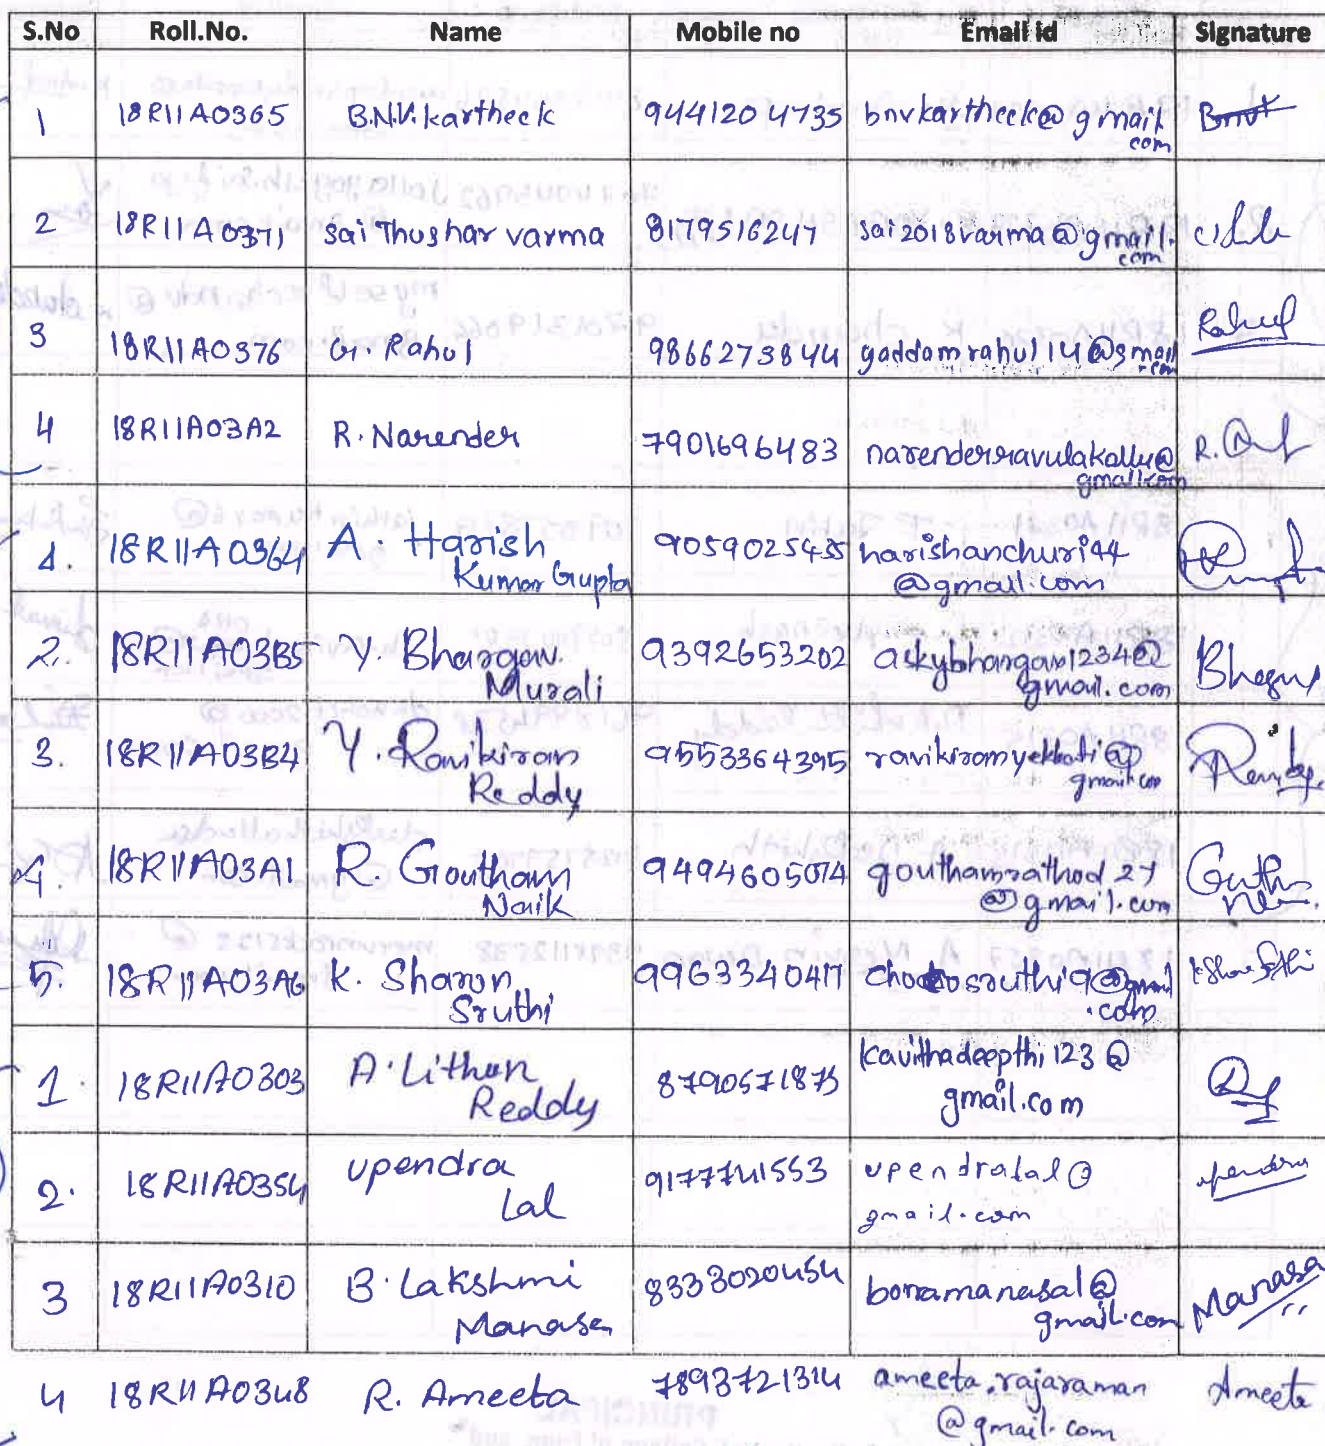 S.No Roll.No. Name Mobile no Email id Signature
1 18R11A0365 B.N.V. kartheek 9441204735 bnvkartheek@gmail
com
2 18R11A0371 Sai Thushar varma 8179516247 sai2018varma@gmail.
com
3 18R11A0376 G. Rahul 9866273844 gaddamrahul14@gmail
.com Rahul
4 18R11A03A2 R. Narender 7901696483 narenderravulakollu@
gmail.com
1. 18R11A0364 A. Harish 9059025435 harishanchuri44
Kumar Gupta @gmail.com
2. 18R11A03B5 Y. Bhargav. 9392653202 askybhargav1234@
Murali gmail.com
3. 18R11A03B4 Y. Ravikiran 9553364395 ravikiranyekkati@
Reddy gmail.com
4. 18R11A03A1 R. Goutham 9494605074 gouthamrathod27
Naik @gmail.com
5. 18R11A03A6 K. Sharon 9963340417
Sruthi .com
1. 18R11A0303 A. Lithan 8790571873 kavithadeepthi123@
Reddy gmail.com
2. 18R11A0354 upendra 9177741553 upendralal@
Lal gmail.com upendra
3 18R11A0310 B. Lakshmi 8333020454 bonamanasa1@
Manasa gmail.com Manasa
4 18R11A0348 R. Ameeta 7893721314 ameeta.rajaraman
@gmail.com Ameeta